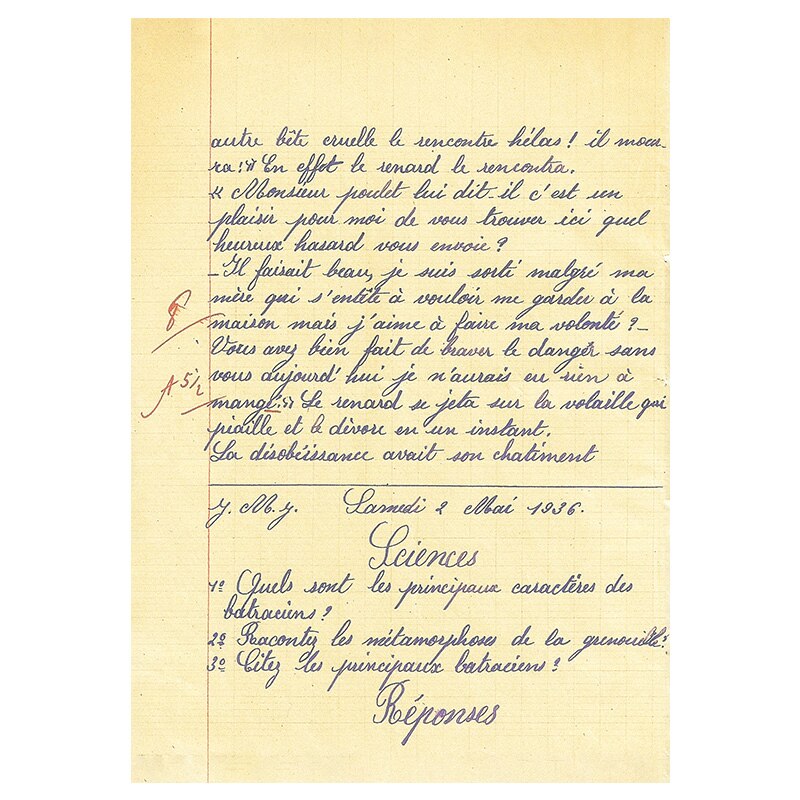 autre bête cruelle le rencontre hélas! il mour-
ra!» En effet le renard le rencontra.
« Monsieur poulet lui dit-il c'est un
plaisir pour moi de vous trouver ici quel
heureux hasard vous envoie?
- Il faisait beau, je suis sorti malgré ma
mère qui s'entête à vouloir me garder à la
8
maison mais j'aime à faire ma volonté? -
Vous avez bien fait de braver le danger sans
A 5 1/2
vous aujourd'hui je n'aurais eu rien à
mangé:» Le renard se jeta sur la volaille qui
piaille et le dévore en un instant.
La désobéissance avait son chatiment
J. M. J. Samedi 2 Mai 1936.
Sciences
1º Quels sont les principaux caractères des
batraciens?
2º Racontez les métamorphoses de la grenouille?
3º Citez les principaux batraciens?
Réponses